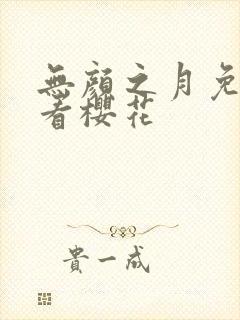 無顏之月免
看櫻花
貴一成